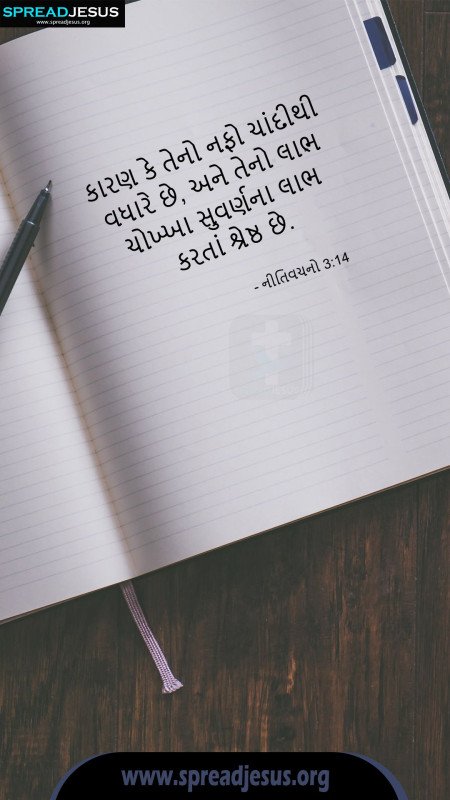 SPREADJESUS
www.spreadjesus.org
કારણ કે તેનો નફો ચાંદીથી
વધારે છે, અને તેનો લાભ
ચોખ્ખા સુવર્ણના લાભ
કરતાં શ્રેષ્ઠ છે.
- નીતિવચનો 3:14
www.spreadjesus.org